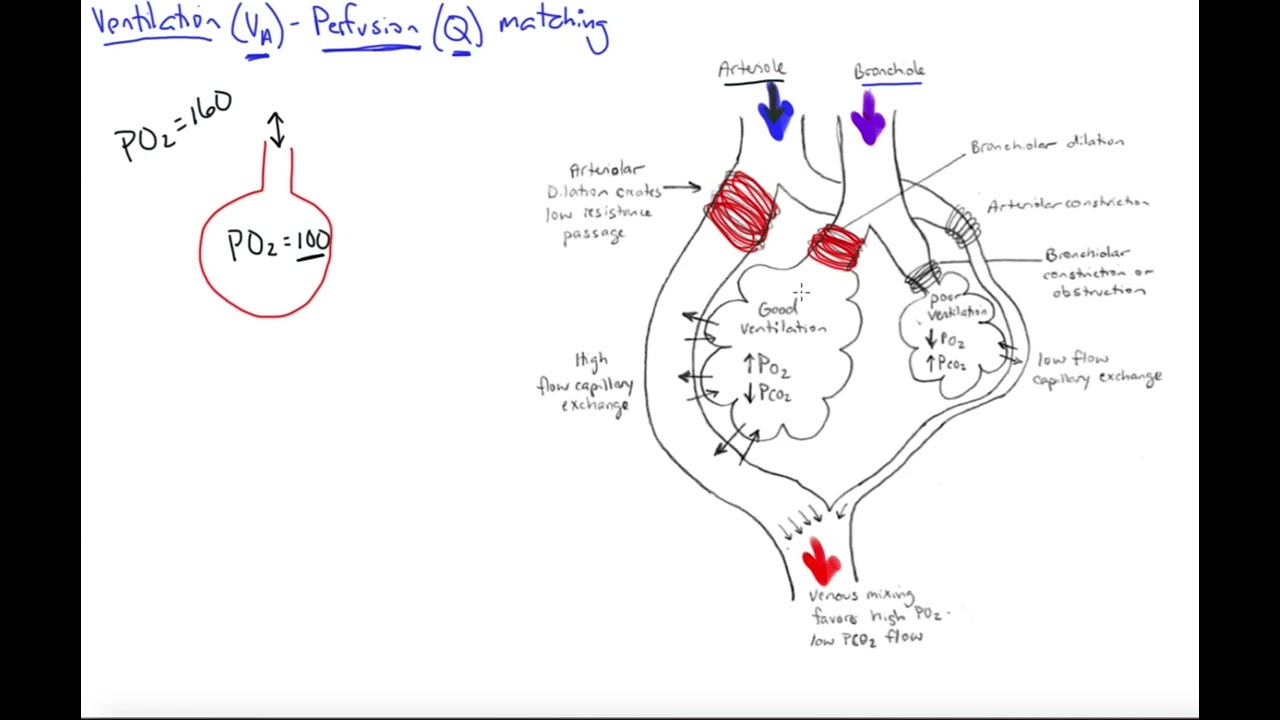 Ventilation (VA) - Perfusion (Q) matching
PO2=160
PO2=100
Arteriole
Bronchiole
Arteriolar
Dilation creates
low resistance
passage
Bronchiolar dilation
Arteriolar constriction
Bronchiolar
constriction or
obstruction
Good
ventilation
↑PO2
↓PCO2
poor
ventilation
↓PO2
↑PCO2
High
flow capillary
exchange
low flow
capillary exchange
Venous mixing
favors high PO2-
low PCO2 flow